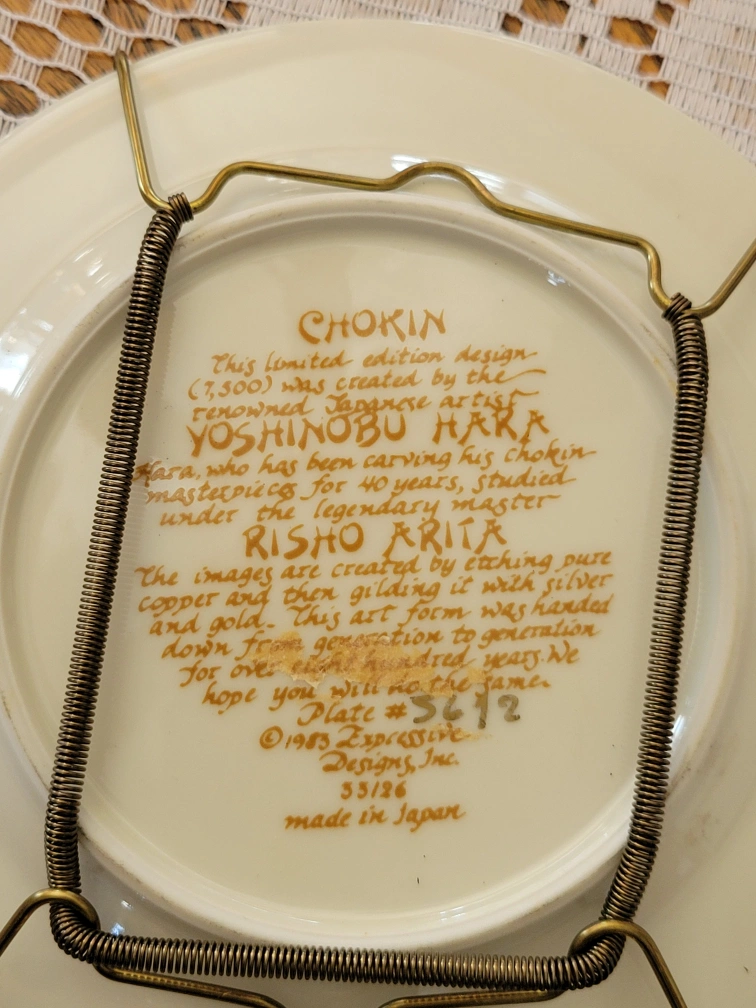 CHOKIN
This limited edition design
(7,500) was created by the
renowned Japanese artist
YOSHINOBU HARA
Hara, who has been carving his chokin
masterpieces for 40 years, studied
under the legendary master
RISHO ARITA
The images are created by etching pure
copper and then gilding it with silver
and gold. This art form was handed
down from generation to generation
for over eight hundred years. We
hope you will do the same.
Plate #
©1983 Expressive
Designs, Inc.
33126
made in Japan